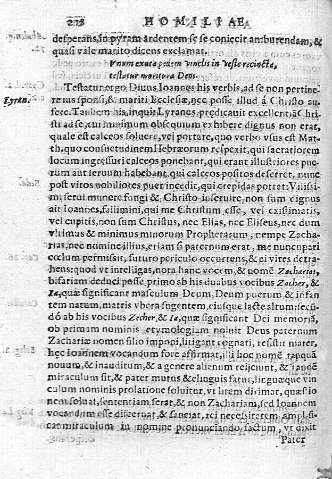 218 HOMILIAE
desperans, in pyram ardentem se se coniecit amburendam, &
quasi vale marito dicens exclamat.
Vnum exuta pedem vinclis in veste recincta,
testatur moritura Deos.
Testatur ergo Diuus Ioannes his verbis, ad se non pertine-
re ius sponsi, & mariti Ecclesiæ, nec posse illud á Christo au-
Lyran.
ferre. Tanben his, inquit Lyranes, prædicauit excellentiã Chri-
sti ad se, cui minimum obsequium exhibere dignus non erat,
quale est calceos soluere, vel portare, quo verbo vsus est Mat-
th, quo consuetudinem Hebræorum respexit, qui sacratiorem
locum ingressuri calceos ponebant, qui erant illustriores pue-
rum aut seruum habebant, qui calceos positos deferret, nunc
post viros nobiliores puer incedit, qui crepidas portet: Vilissi-
mi, serui munere fungi & Christo inseruire, non sum dignus
ait Ioannes, fallimini, qui me Christum esse, vel existimatis,
vel cupitis, non sum Christus, nec Elias, nec Eliseus, nec dum
vltimus & minimus minorum Prophetarum, nempe Zacha-
rias, nec nomine illius, etiam si paternum erat, me nuncupari
cœlum permisit, futuro periculo occurrens, & ei vires detra-
hens: quod vt intelligas, nota hanc vocem, & nomẽ Zacharias,
bifariam deduci posse, primo ab his duabus vocibus Zacher, &
Ia, quæ significant masculum Deum, Deum puerum & infan-
tem natum, matris vbera sugentem,
do ab his vocibus Zecher, & Ia, quæ significant Dei memoriã,
ob primam nominis etymologiam noluit Deus paternum
Zachariæ nomen filio imponi, litigant cognati, resistit mater,
hęc Ioannem vocandum fore affirmat, illi hoc nomẽ tãpquã
nouum, & inauditum, & a genere alienum reijciunt, & tandẽ
miraculum fit, & pater mutus & elinguis fatur, linguæque vin
culum nominis prolatione soluitur, vt litem dirimat, quæstio
nem soluat, sententiam ferat, & non Zachariam, sed Ioannem
vocandum esse discernat, & sanciat, rei necessitatem ampli.si-
cat miraculum in nomine pronunciando factum, vt dixit
Pater